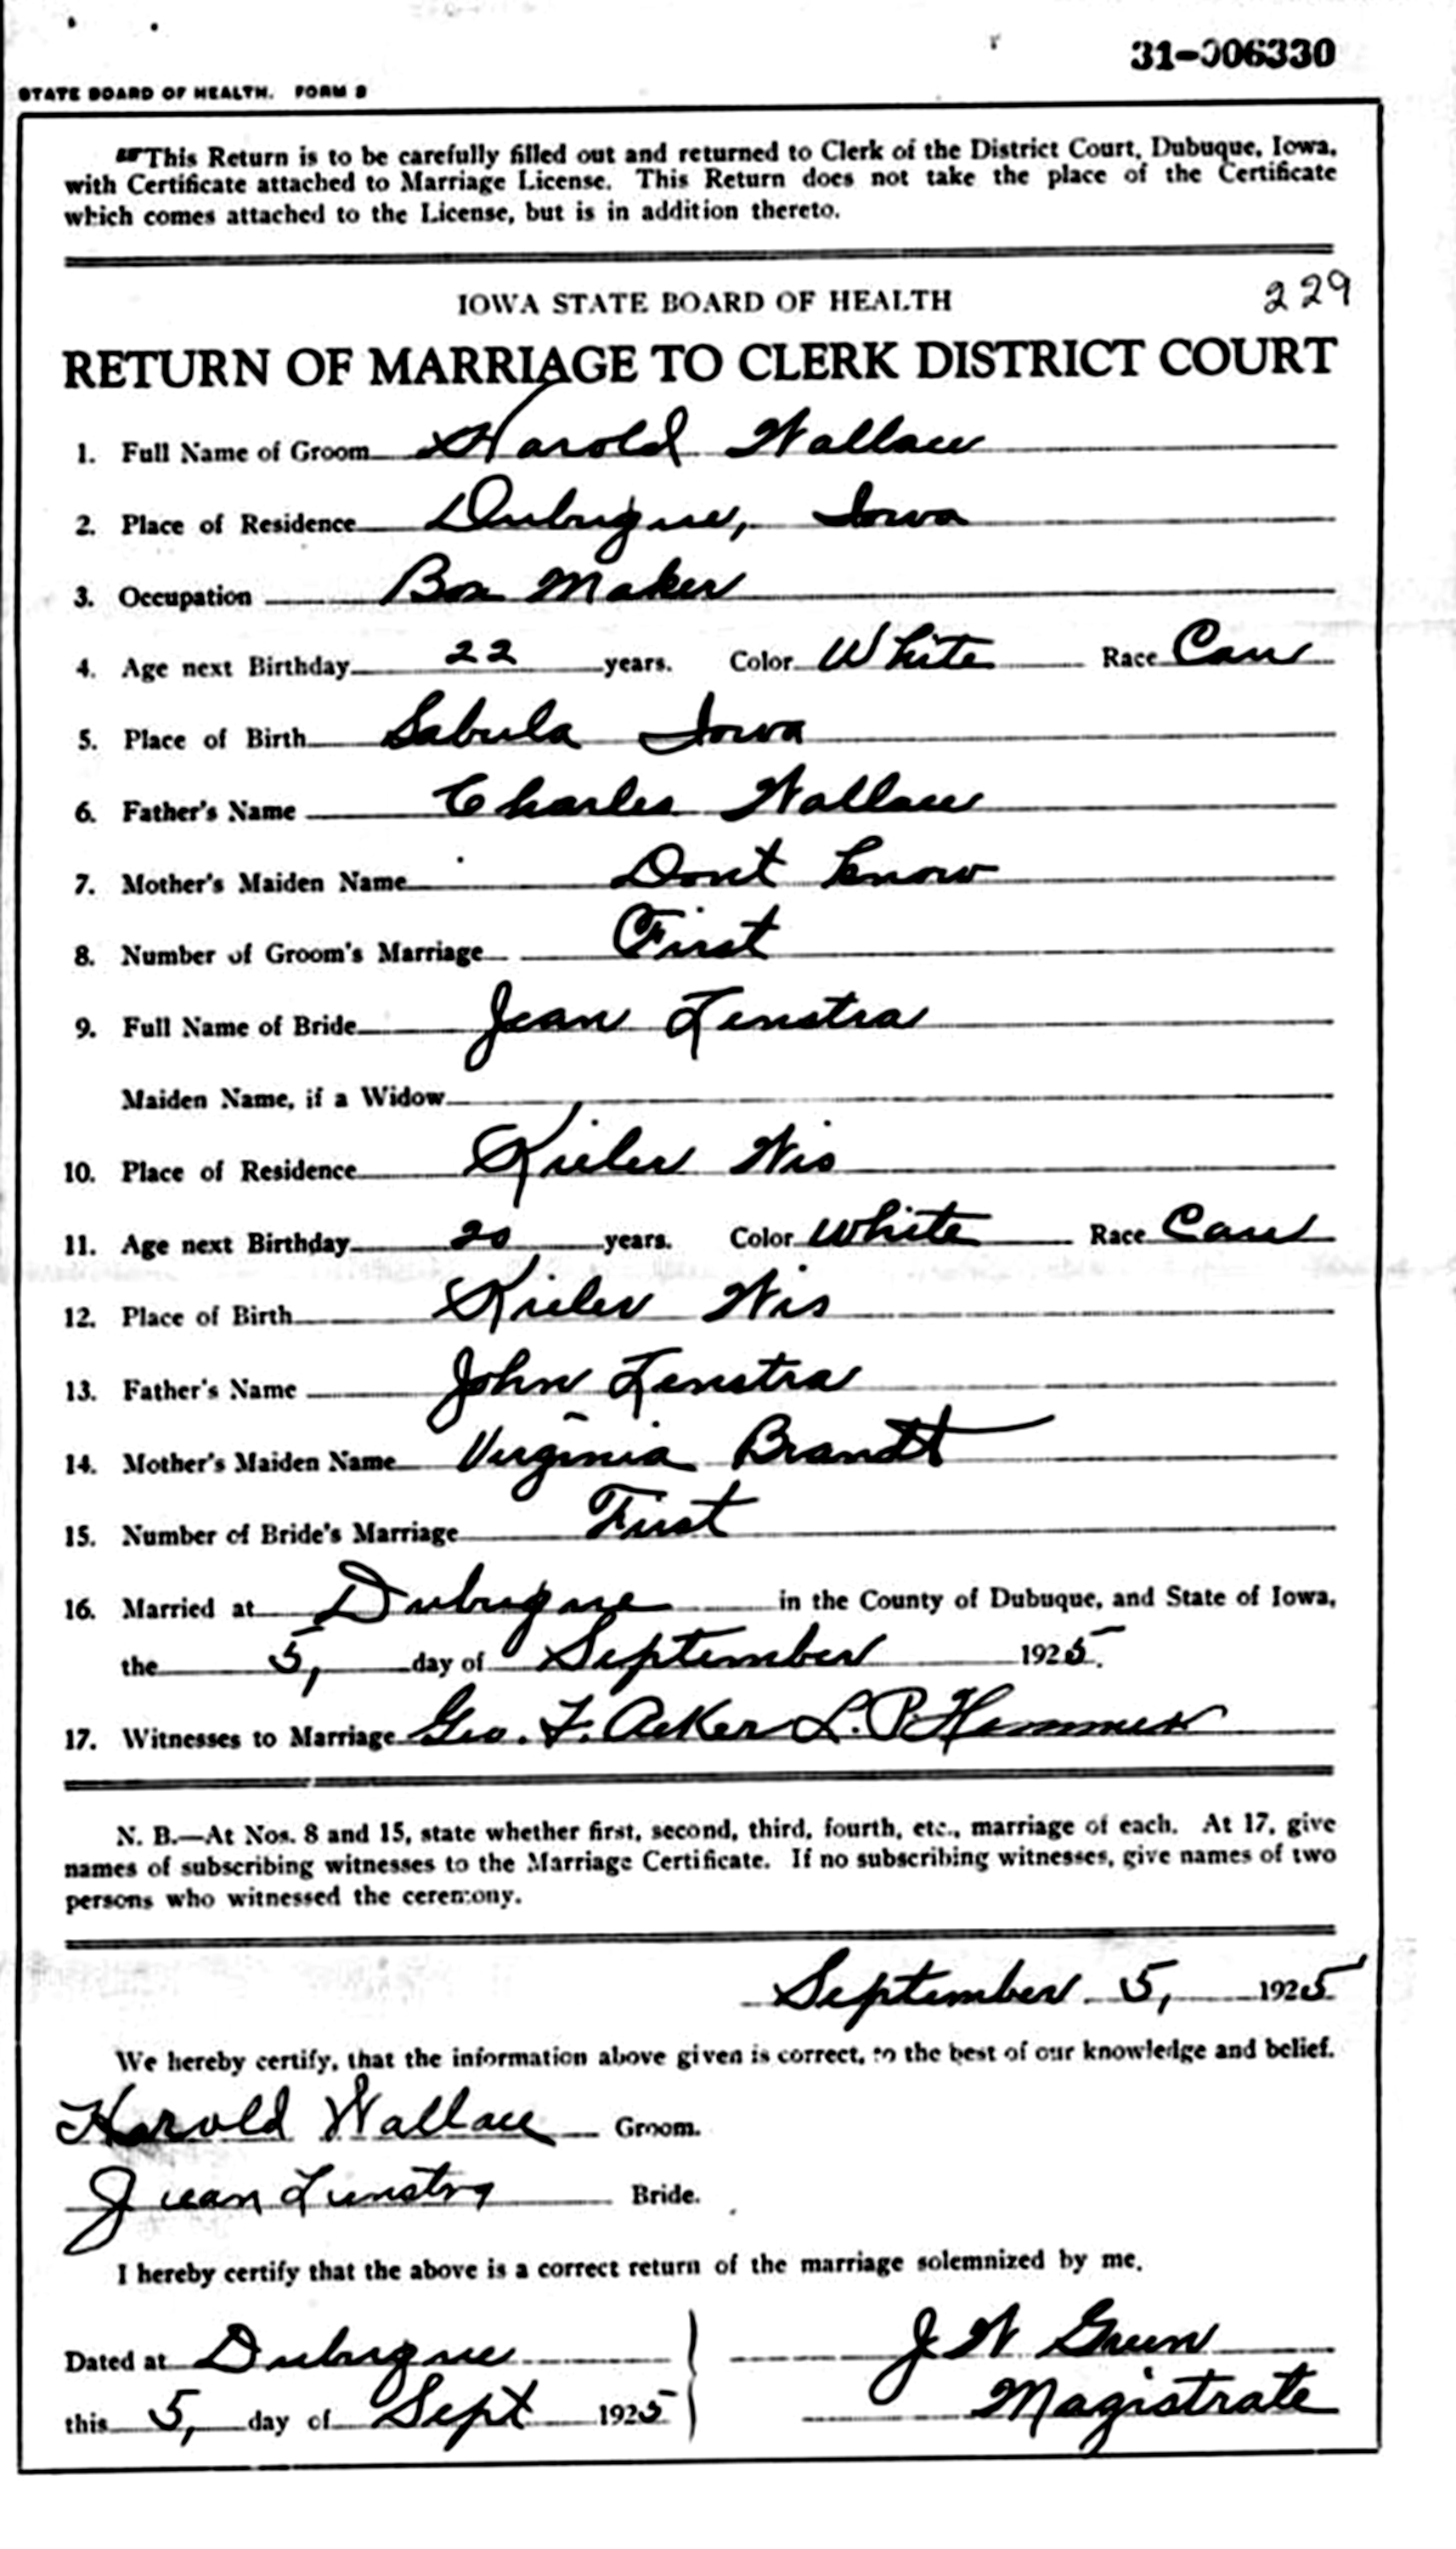 31-006330
STATE BOARD OF HEALTH. FORM 8
☞This Return is to be carefully filled out and returned to Clerk of the District Court, Dubuque, Iowa,
with Certificate attached to Marriage License. This Return does not take the place of the Certificate
which comes attached to the License, but is in addition thereto.
IOWA STATE BOARD OF HEALTH 229
RETURN OF MARRIAGE TO CLERK DISTRICT COURT
1. Full Name of Groom Harold Wallace
2. Place of Residence Dubuque, Iowa
3. Occupation Box Maker
4. Age next Birthday 22 years. Color White Race Cau
5. Place of Birth Sabula Iowa
6. Father's Name Charles Wallace
7. Mother's Maiden Name Dont Know
8. Number of Groom's Marriage First
9. Full Name of Bride Jean Lenstra
Maiden Name, if a Widow
10. Place of Residence Kieler Wis
11. Age next Birthday 20 years. Color White Race Cau
12. Place of Birth Kieler Wis
13. Father's Name John Lenstra
14. Mother's Maiden Name Virginia Brandt
15. Number of Bride's Marriage First
16. Married at Dubuque in the County of Dubuque, and State of Iowa,
the 5, day of September 1925.
17. Witnesses to Marriage Geo. F. Acker L. P. Hammer
N. B.—At Nos. 8 and 15, state whether first, second, third, fourth, etc., marriage of each. At 17, give
names of subscribing witnesses to the Marriage Certificate. If no subscribing witnesses, give names of two
persons who witnessed the ceremony.
September 5, 1925
We hereby certify, that the information above given is correct, to the best of our knowledge and belief.
Harold Wallace Groom.
Jean Lenstra Bride.
I hereby certify that the above is a correct return of the marriage solemnized by me.
Dated at Dubuque J W Green
this 5, day of Sept 1925 Magistrate